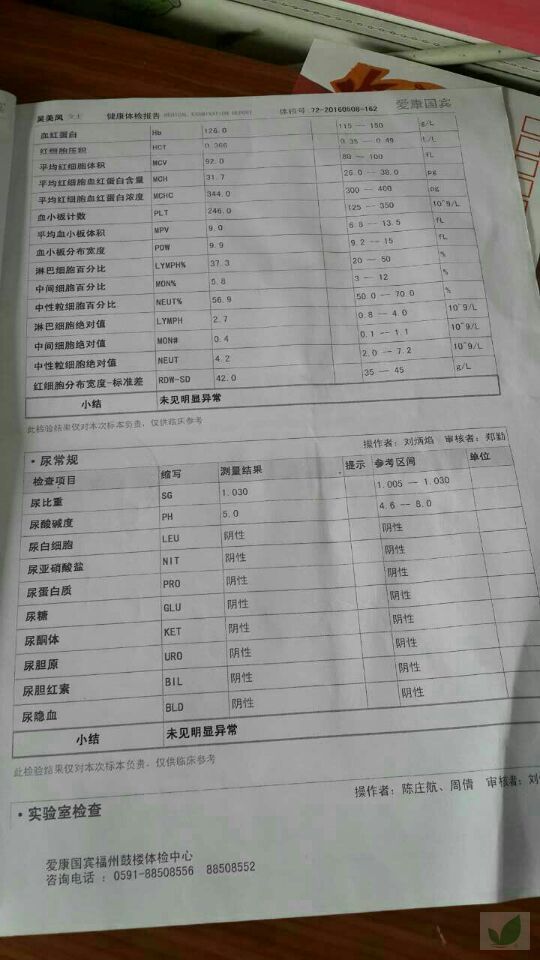 吴美凤 女士 健康体检报告 MEDICAL EXAMINATION REPORT 体检号：72-20160508-162 爱康国宾
血红蛋白 Hb 126.0 115 — 150 g/L
红细胞压积 HCT 0.366 0.35 — 0.49 L/L
平均红细胞体积 MCV 92.0 80 — 100 fL
平均红细胞血红蛋白含量 MCH 31.7 26.0 — 38.0 pg
平均红细胞血红蛋白浓度 MCHC 344.0 300 — 400 pg
血小板计数 PLT 246.0 125 — 350 10^9/L
平均血小板体积 MPV 9.0 6.8 — 13.5 fL
血小板分布宽度 PDW 9.9 9.2 — 15 fL
淋巴细胞百分比 LYMPH% 37.3 20 — 50 %
中间细胞百分比 MON% 5.8 3 — 12 %
中性粒细胞百分比 NEUT% 56.9 50.0 — 70.0 %
淋巴细胞绝对值 LYMPH 2.7 0.8 — 4.0 10^9/L
中间细胞绝对值 MON# 0.4 0.1 — 1.1 10^9/L
中性粒细胞绝对值 NEUT 4.2 2.0 — 7.2 10^9/L
红细胞分布宽度-标准差 RDW-SD 42.0 35 — 45 g/L
小结 未见明显异常
此检验结果仅对本次标本负责，仅供临床参考
操作者：刘炳焰 审核者：郑勤
·尿常规
检查项目 缩写 测量结果 提示 参考区间 单位
尿比重 SG 1.030 1.005 — 1.030
尿酸碱度 PH 5.0 4.6 — 8.0
尿白细胞 LEU 阴性 阴性
尿亚硝酸盐 NIT 阴性 阴性
尿蛋白质 PRO 阴性 阴性
尿糖 GLU 阴性 阴性
尿酮体 KET 阴性 阴性
尿胆原 URO 阴性 阴性
尿胆红素 BIL 阴性 阴性
尿隐血 BLD 阴性 阴性
小结 未见明显异常
此检验结果仅对本次标本负责，仅供临床参考
操作者：陈庄航、周倩 审核者：刘
·实验室检查
爱康国宾福州鼓楼体检中心
咨询电话 ：0591-88508556 88508552